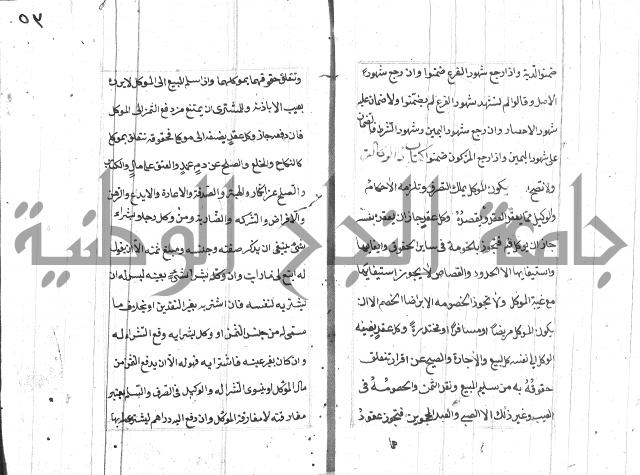 ضمنوا الدية واذا رجع شهود الفرع ضمنوا وان رجع شهود
الاصل وقالوا لم نشهد شهود الفرع لم يضمنوا ولا ضمان عليه
شهود الاحصان وان رجع شهود اليمين وشهود الشرط فالضمان
على شهود اليمين واذا رجع المزكون ضمنوا كتاب الوكالة
ولا تصح يكون الموكل يملك التصرف وتلزمه الاحكام
والوكيل ممن يعقد العقد ويقصده وكل عقد جاز ان يعقده بنفسه
جاز ان يوكل فيجوز بالخصومة في ساير الحقوق وايفايها
واستيفايها الا الحدود والقصاص لا يجوز استيفاؤها
مع غيبة الموكل ولا يجوز الخصومه الا برضا الخصم الا ان
يكون الموكل مريضا او مسافرا او مخدرة وكل عقد يضيفه
الوكيل الى نفسه كالبيع والاجارة والصلح عن اقرار تتعلق
حقوقه به من تسليم المبيع ونقد الثمن والخصومة في
العيب وغير ذلك الا الصبي والعبد المحجورين فتجوز عقود
هما
٥٣
وتتعلق حقوقهما بموكلهما وان سلم المبيع الى الموكل لا يرده
بعيب الا باذنه وللمشتري ان يمتنع من دفع الثمن الى الموكل
فان دفعه جاز وكل عقد يضيفه الى موكله فحقوقه تتعلق بموكله
كالنكاح والخلع والصلح عن دم عمد والعتق على مال والكتابة
والصلح عن انكار والهبة والصدقة والاعارة والايداع والرهن
والاقراض والشركه والمضاربة ومن وكل رجلا بشراء
شئ ينبغي ان يذكر صفته وجنسه ومبلغ ثمنه الا ان يقول
له ابتع لي ما رايت وان وكله بشراء شئ بعينه ليس له ان
يشتريه لنفسه فان اشتراه بغير النقدين او بخلاف ما
سمى له من جنس الثمن او وكل بشرايه وقع الشراء له
وان كان بغير عينه فاشتراه فهو له الا ان يدفع الثمن من
مال الموكل او ينوي الشراء له والوكيل في الصرف والسلم يعتبر
مفارقته لا مفارقة الموكل وان دفع اليه دراهم ليشتري بها
جامعة النجاح الوطنية